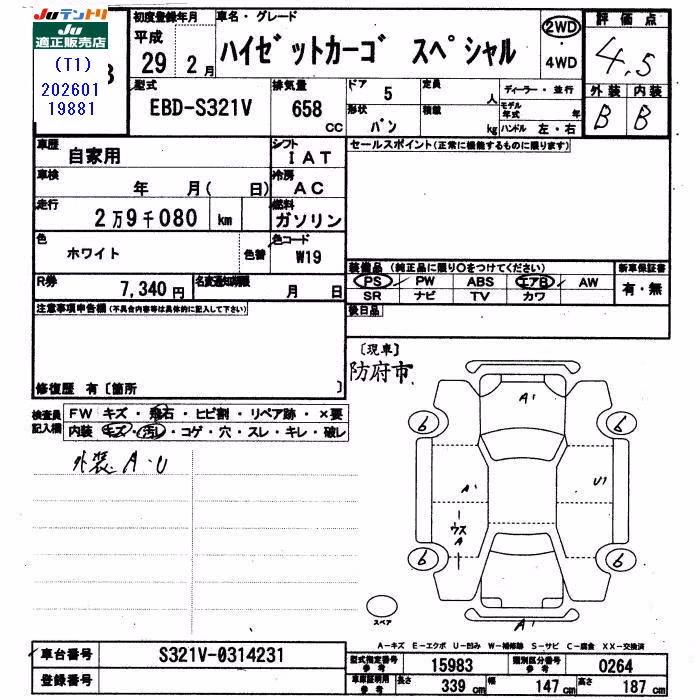 Juテントリ
Ju
適正販売店
(T1)
202601
19881
初度登録年月
平成
29 2月
車名・グレード
ハイゼットカーゴ スペシャル
2WD
・
4WD
評価点
4.5
外装 内装
B B
型式
EBD-S321V
排気量
658
CC
ドア 5
形状 バン
定員
人
積載
kg
ディーラー・並行
モデル年式 年
ハンドル 左・右
車歴
自家用
シフト
IAT
車検
年 月( 日)
冷房
AC
走行
2万9千080 km
燃料
ガソリン
色
ホワイト
色替
色コード
W19
R券
7,340円
名変通知期限
月 日
セールスポイント(正常に機能するものに限ります)
装備品(純正品に限り○をつけてください)
PS PW ABS エアB AW
SR ナビ TV カワ
新車保証書
有・無
後日品
注意事項申告欄(不具合内容等は具体的に記入して下さい)
修復歴 有〔箇所 〕
〔現車〕
防府市
検査員記入欄
FW キズ・飛石・ヒビ割・リペア跡・×要
内装 キズ・汚レ・コゲ・穴・スレ・キレ・破レ
外装 A・U
A1
6 6
A1 U1
ウス
A
6 6
A1
スペア
A-キズ E-エクボ U-凹み W-補修跡 S-サビ C-腐食 XX-交換済
車台番号 S321V-0314231
登録番号
型式指定番号参考 15983 類別区分番号参考 0264
車庫証明用参考 長さ 339cm 幅 147cm 高さ 187cm